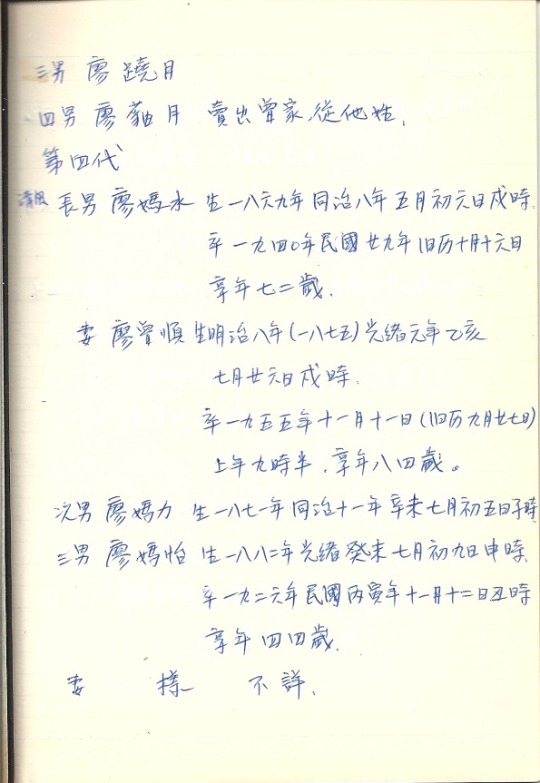 三男 廖蹺月
四男 廖貓月 賣出曾家,從他姓,
第四代
長男 廖媽水 生一八六九年同治八年五月初六日戍時.
卒一九四○年民國廿九年旧历十月十六日
享年七二歲.
妻 廖曾順 生明治八年(一八七五)光緒元年乙亥
七月廿六日戍時.
卒一九五五年十一月十一日(旧历九月廿七日)
上午九時半.享年八四歲。
次男 廖媽力 生一八七一年同治十一年辛未七月初五日子時
三男 廖媽怡 生一八八二年光緒癸未七月初九日申時.
卒一九二六年民國丙寅年十一月十二日丑時
享年四四歲.
妻 不詳.